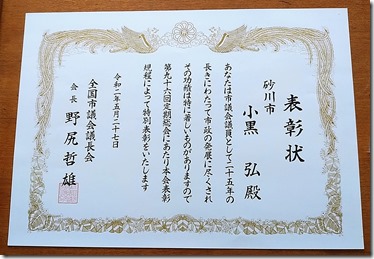 表彰状
砂川市
小黒 弘殿
あなたは市議会議員として二十五年の
長きにわたって市政の発展に尽くされ
その功績は特に著しいものがありますので
第九十六回定期総会にあたり本会表彰
規程によって特別表彰をいたします
令和二年五月二十七日
全国市議会議長会
会長 野尻哲雄